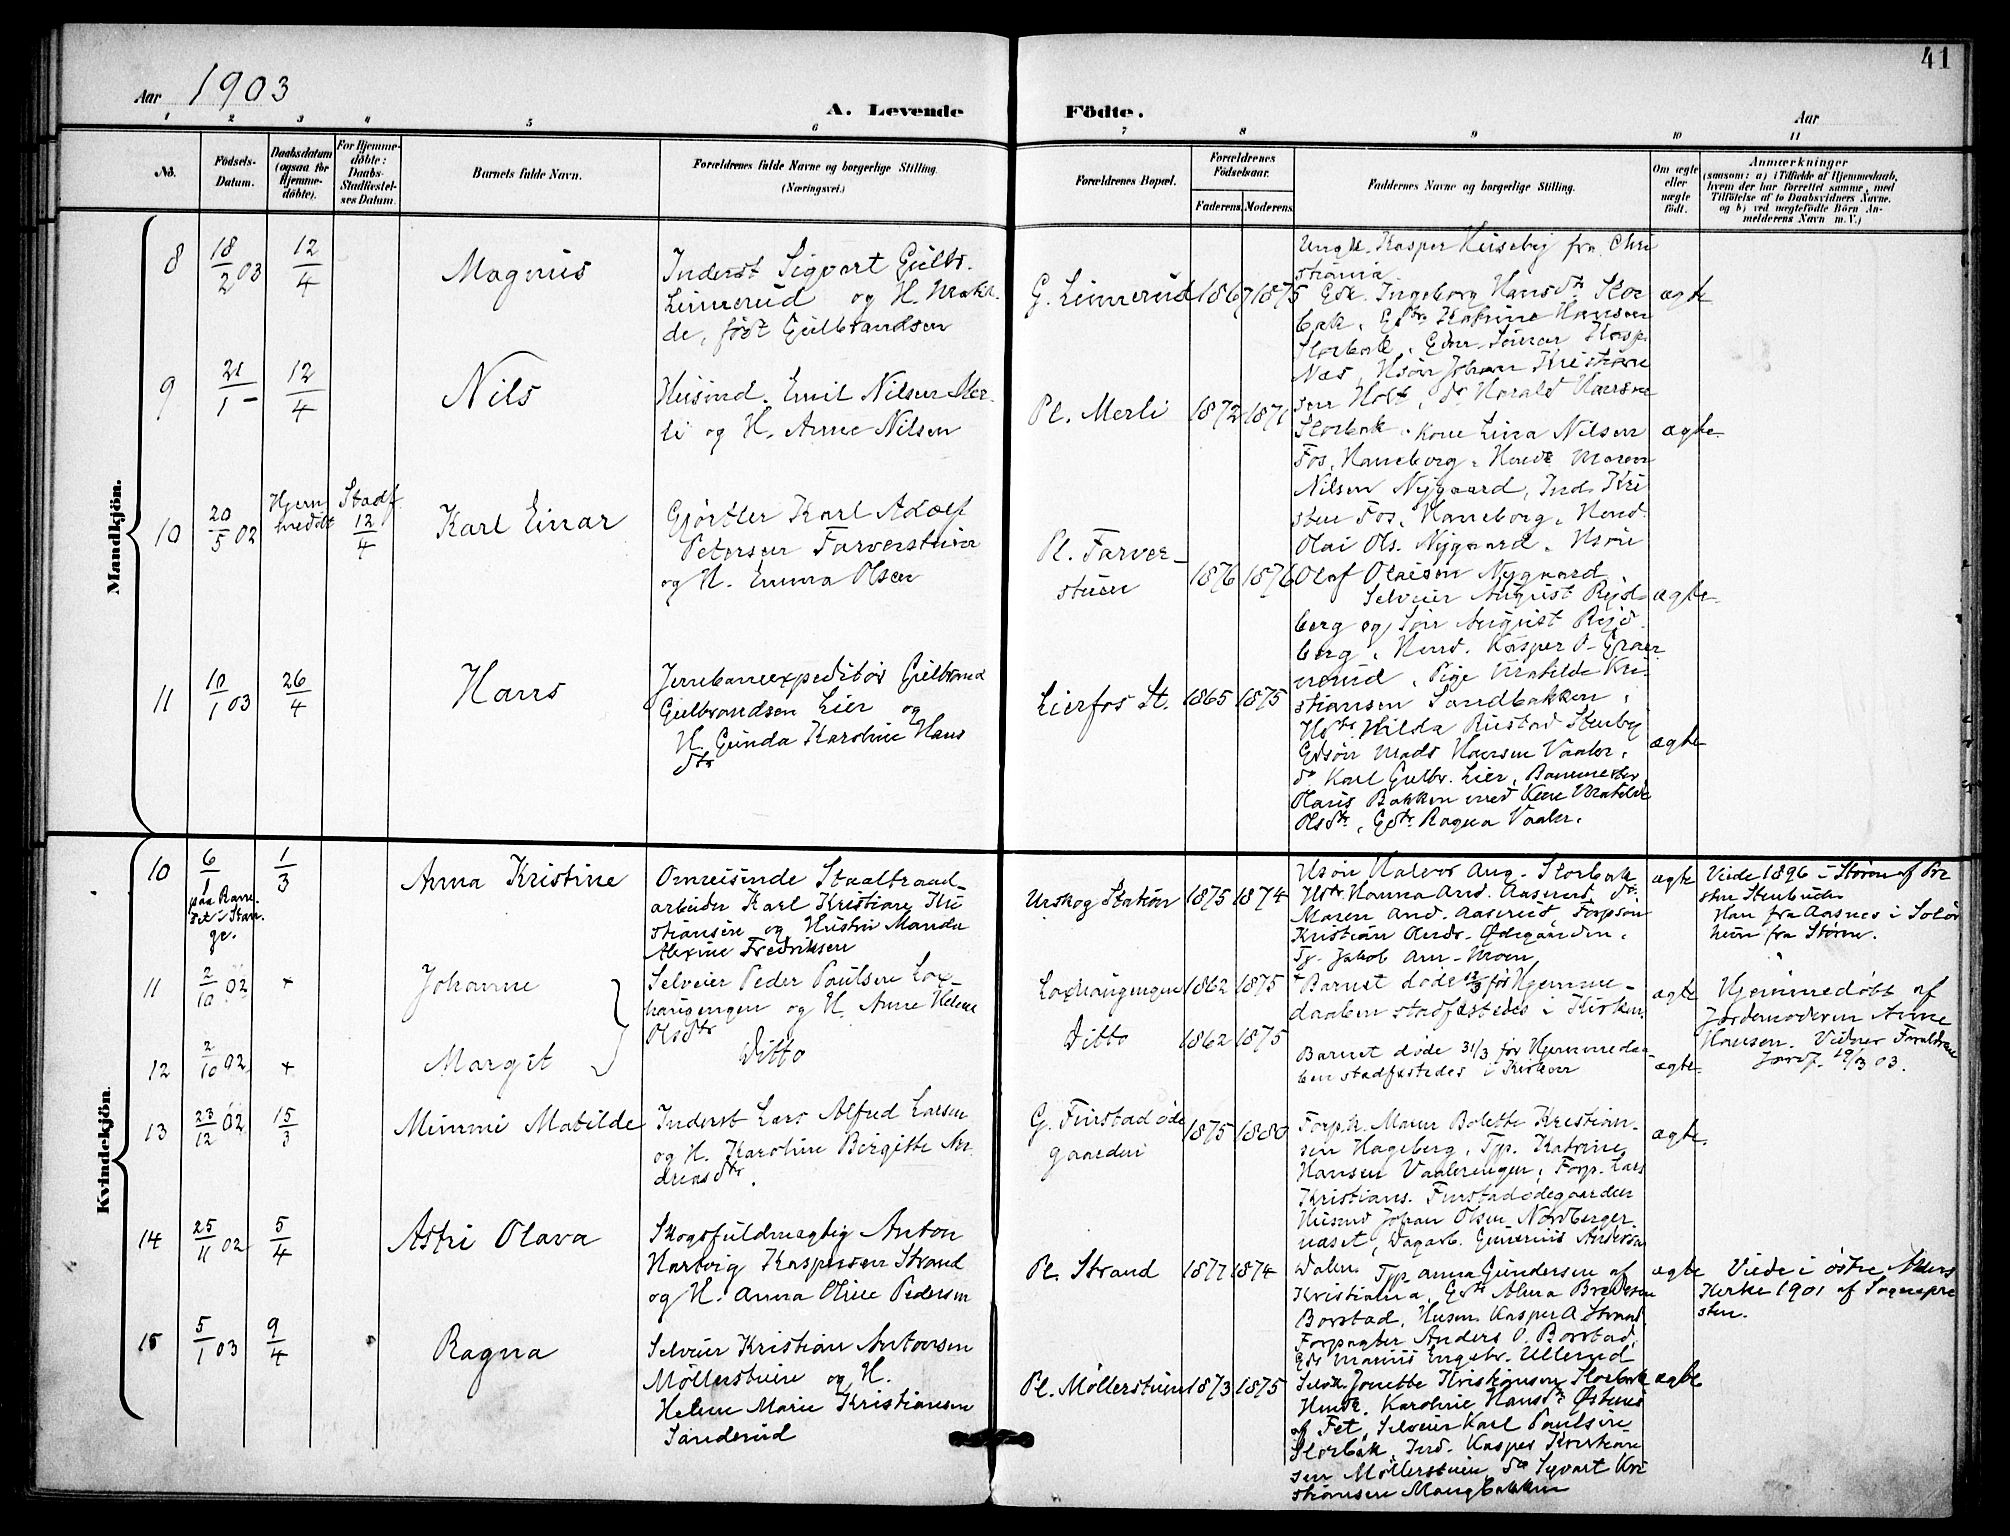 41
Aar 1903
A. Levende
Födte.
Aar
1 2 3 4 5 6 7 8 9 10 11
No.
Födsels-
Datum.
Daabsdatum
(ogsaa for
Hjemme-
döbte).
For Hjemme-
döbte:
Daabs-
Stadfæstel-
ses Datum.
Barnets fulde Navn.
Forældrenes fulde Navne og borgerlige Stilling.
(Næringsvei.)
Forældrenes Bopæl.
Forældrenes
Födselsaar.
Faderens. Moderens.
Faddernes Navne og borgerlige Stilling.
Om ægte
eller
uægte
födt.
Anmærkninger
(saasom: a) i Tilfælde af Hjemmedaab,
hvem der har forrettet samme, med
Tilföielse af to Daabsvidners Navne.
og b) ved uægtefödte Börn An-
melderens Navn m. V.)
Mandkjön.
8
18/2 03
12/4
Magnus
Inderst Sigvart Gulbr.
Linnerud og H. Mathil-
de, født Gulbrandsen
G. Linnerud
1867 1875
Ungk. Kasper Huseby fra Chri
stiania
Gdk. Ingeborg Hansdtr Stor
bak, Gdtr Katrine Hansen
Storbak, Gdm. Kasp.
Næs
ægte
9
21/1
12/4
Nils
Husmd. Emil Nilsen Mer-
li og H. Anne Nilsen
Pl. Merli
1872 1871
Hsön Johan Kristian
sen Holt, do Harald Hansen
Storbak, Kone Lina Nilsen
Fos, Haneborg, Hmde Maren
Nilsen Nygaard, Ind. Kri
sten Fos, Haneborg, Hmd.
Olai Ols. Nygaard, Hsön
Olaf Olaisen Nygaard
ægte.
10
20/5 02
Hjem
medöbt
Stadf.
12/4
Karl Einar
Gjörtler Karl Adolf
Petersen Farverstuen
og H. Emma Olsen
Pl. Farver-
stuen
1876 1876
Selveier August Ryd-
berg og Sön August Ryd
berg, Hmd. Kasper O. Graner
nerud, Pige Matilde Kri-
stiansen Sandbakken,
ægte.
11
10/1 03
26/4
Hans
Jernbaneexpeditör Gulbrand
Gulbrandsen Lier og
H. Gunda Karoline Hans
dtr
Lierfos St.
1865 1875
Hdtr Hilda Rustad Stenby
Gdsön Mads Hansen Vaaler,
do Karl Gulbr. Lier, Banmester
Olaus Bakken med Kone Matilde
Olsdtr, Gdtr Ragna Vaaler.
ægte
Kvindekjön.
10
6/1
paa Ramse
set i Stan
ge.
1/3
Anna Kristine
Omreisende Staaltraad-
arbeider Karl Kristian Kri
stiansen og Hustru Manda
Alexine Fredriksen
Urskog Station
1875 1874
Hsön Halvor Aug. Storbak
Hdtr Hanna And. Aaserud, do
Maren And. Aaserud, Forpsön
Kristian Andr. Ødegaarden,
Tj. Jakob Am. Moen
ægte
Viede 1896 i Støren af Pre
sten Stenbuch
Han fra Aasnes i Solör
hun fra Støren.
11
2/10 02
+
Johanne
Selveier Peder Paulsen Lox-
haugengen og H. Anne Helene
Olsdtr
Loxhaugengen
1862 1875
+ Barnet døde 12/3 för Hjemme-
daaben stadfæstedes i Kirken.
ægte
Hjemmedöbt af
Jordemoderen Anne
Hansen. Vidner Forældrene
Jordf. 19/3 03.
12
2/10 02
+
Margit
Ditto
Ditto
1862 1875
Barnet døde 31/3 för Hjemmedaa-
ben stadfæstedes i Kirken
ægte.
13
23/12 02
15/3
Mimmi Matilde
Inderst Lars Alfred Larsen
og H. Karoline Birgitte An-
dreasdtr.
G. Finstadøde
gaarden
1875 1880
Forpk. Maren Bolette Kristian-
sen Hageberg, Tjp. Katrine
Hansen Vaalerengen, Forp. Lars
Kristians. Finstadødegaarden
Husmd Johan Olsen Nordberger
næset, Dagarb. Gunerius Andersen
Dalen
ægte.
14
25/11 02
5/4
Astri Olava
Skogsfuldmægtig Anton
Hartvig Kaspersen Strand
og H. Anna Oline Pedersen
Pl. Strand
1877 1874
Tjp. Anna Gundersen af
Kristiania, Gdtr Alma Bredesen
Borstad, Husm. Kasper A. Strand
Forpagter Anders O. Borstad,
Gds. Marius Engebr. Ullerud
ægte
Viede i østre Akers
Kirke 1901 af Sognepre
sten.
15
5/1 03
9/4
Ragna
Selveier Kristian Antonsen
Møllerstuen og H.
Helene Marie Kristiansen
Sanderud
Pl. Møllerstuen
1873 1875
Selvk. Jonette Kristiansen Storbak
Hmdk. Karoline Hansdtr Østmo
af Fet, Selveier Karl Paulsen
Storbak, Ind. Kasper Kristian
sen Møllerstuen, do Sigvart Kri
stiansen Mangbakken
ægte